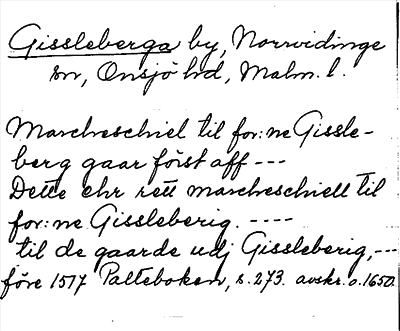 Gissleberga by, Norrvidinge
sn, Onsjö hd, Malm. l.
Marcheschiel til for: ne Gissle-
berg gaar först aff ---
Dette ehr rett marcheschiell til
for: ne Gissleberig. ----
til de gaarde udj Gissleberig, --
före 1517 Palteboken, s. 273. avskr. o. 1650.